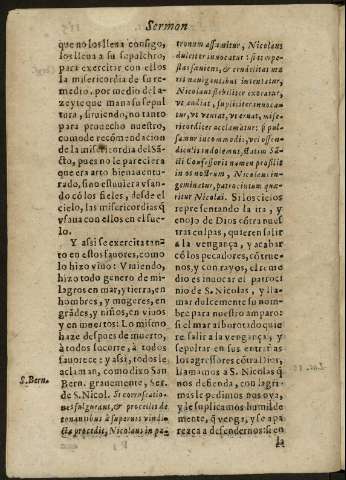 Sermon
que no los lleva consigo,
los lleva a su sepulchro,
para exercitar con ellos
la misericordia de su re-
medio, por medio del a-
zeyte que mana su sepul
tura, siruiendo, no tanto
para prouecho nuestro,
como de recomendacion
de la misericordia del Sã-
cto, pues no le pareciera
que era arto bienauentu-
rado, sino estuuiera vsan-
do cõ los fieles, desde el
cielo, las misericordias q̃
vsaua con ellos en el sue-
lo.
Y assi se exercita tan-
to en estos fauores, como
lo hizo viuo: Viuiendo,
hizo todo genero de mi-
lagros en mar, y tierra, en
hombres, y mugeres, en
grãdes, y niños, en viuos
y en muertos: Lo mismo
haze despues de muerto,
à todos socorre, à todos
fauorece: y assi, todos le
aclaman, como dixo San
Bern. grauemente, Ser.
de S. Nicol. Si corruscatio-
nes fulgurant, & procellis de
tonantibus à superuis vindi-
cta procedit, Nicolaus in pa-
S. Bern.
tronum assumitur, Nicolaus
dulciter inuocatur: si tempe-
stas sæuiens, & crudelitas ma
ris nauigantibus intentatur,
Nicolaus flebiliter exoratur,
vt audiat, supliciter inuocan-
tur, vt veniat, vt eruat, mise-
ricorditer acclamatur: si pul-
samur incommodis: vel offen-
diculis indolemus, statim Sã-
cti Confessoris nomen prosilit
in os nostrum, Nicolaus in-
geminatur, patrocinium quæ-
ritur Nicolai. Si los cielos
representando la ira, y
enojo de Dios cõtra nues
tras culpas, quieren salir
a la vengança, y acabar
cõ los pecadores, cõ true-
nos, y con rayos, el reme
dio es inuocar el patroci
nio de S. Nicolas, y lla-
mar dulcemente su nom-
bre para nuestro amparo:
si el mar alborotado quie
re salir a la vengança, y
sepultar en sus entrañas
los agressores cõtra Dios,
llamamos a S. Nicolas q̃
nos defienda, con lagri-
mas le pedimos nos oya,
y le suplicamos humilde
mente, q̃ venga, y se apa-
rezca a defendernos: si en
la